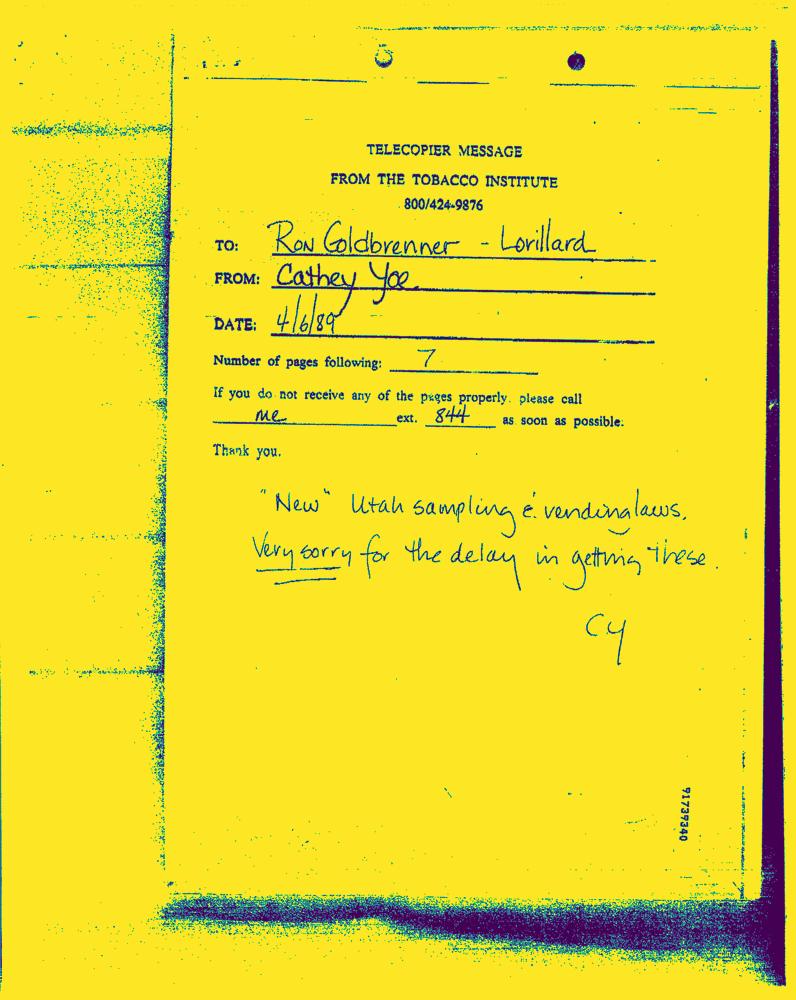 TELECOPIER MESSAGE
FROM THE TOBACCO INSTITUTE
800/424-9876
TO: Ron Goldbrenner - Lorillard
FROM: Cathey Yoe
DATE: 4/6/89
Number of pages following: 7
If you do not receive any of the pages properly, please call
me ext. 844 as soon as possible.
Thank you.
"New" Utah sampling & vending laws.
Very sorry for the delay in getting these.
CY
91739340